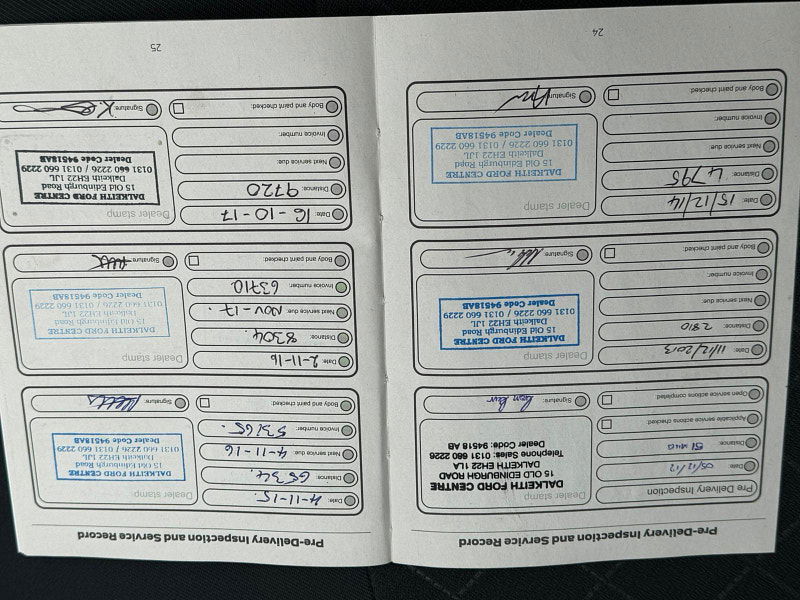 Pre-Delivery Inspection and Service Record
Pre Delivery Inspection
Date: 05/12/12
Distance: 51 miles
Applicable service actions checked:
Open service actions completed:
DALKEITH FORD CENTRE
15 OLD EDINBURGH ROAD
DALKEITH EH22 1LA
Telephone Sales: 0131 660 2226
Dealer Code: 94518 AB
Signature:
Date: 11/12/2013
Distance: 2810
Next service due:
Invoice number:
Body and paint checked:
DALKEITH FORD CENTRE
15 Old Edinburgh Road
Dalkeith EH22 1JL
0131 660 2226 / 0131 660 2229
Dealer Code 94518AB
Dealer stamp
Signature:
Date: 15/12/14
Distance: 4795
Next service due:
Invoice number:
Body and paint checked:
Dealer stamp
DALKEITH FORD CENTRE
15 Old Edinburgh Road
Dalkeith EH22 1JL
0131 660 2226 / 0131 660 2229
Dealer Code 94518AB
Signature:
24
Pre-Delivery Inspection and Service Record
Date: 4-11-15
Distance: 6534.
Next service due: 4-11-16
Invoice number: 53165.
Body and paint checked:
Dealer stamp
DALKEITH FORD CENTRE
15 Old Edinburgh Road
Dalkeith EH22 1JL
0131 660 2226 / 0131 660 2229
Dealer Code 94518AB
Signature:
Date: 2-11-16
Distance: 8304.
Next service due: Nov-17.
Invoice number: 63710
Body and paint checked:
Dealer stamp
DALKEITH FORD CENTRE
15 Old Edinburgh Road
Dalkeith EH22 1JL
0131 660 2226 / 0131 660 2229
Dealer Code 94518AB
Signature:
Date: 16-10-17
Distance: 9720
Next service due:
Invoice number:
Body and paint checked:
Dealer stamp
DALKEITH FORD CENTRE
15 Old Edinburgh Road
Dalkeith EH22 1JL
0131 660 2226 / 0131 660 2229
Dealer Code 94518AB
Signature:
25